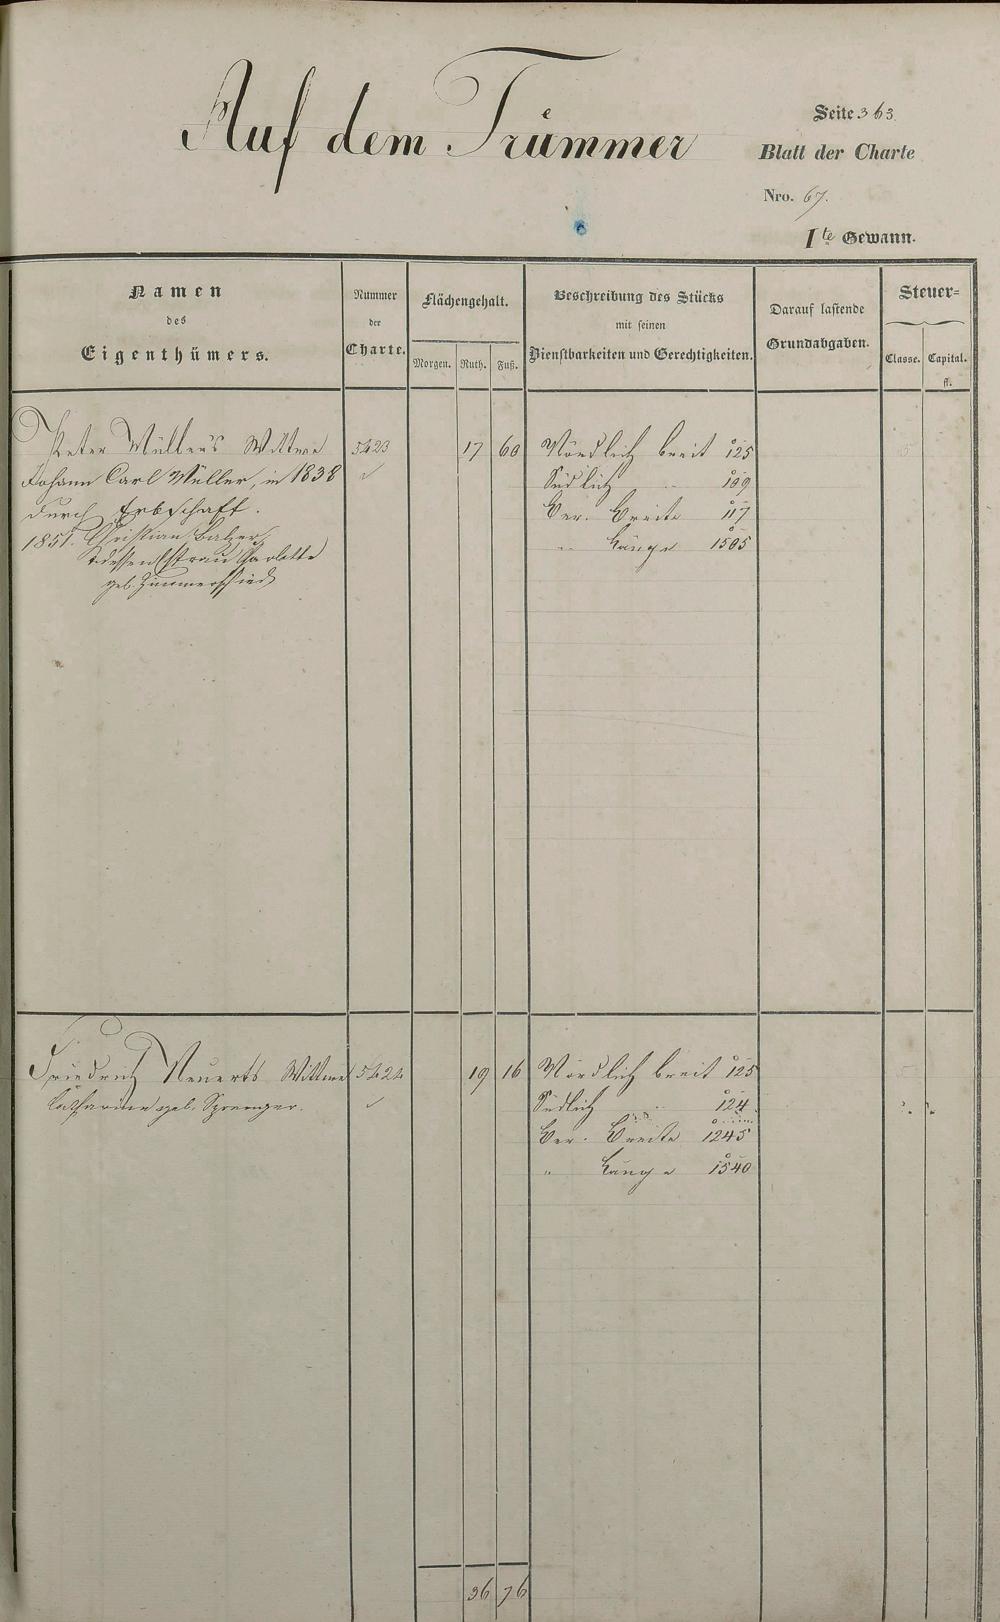 Auf dem Trümmer
Seite 363
Blatt der Charte
Nro. 67.
Ite Gewann.
Namen
des
Eigenthümers.
Nummer
der
Charte.
Flächengehalt.
Morgen. Ruth. Fuß.
Beschreibung des Stücks
mit seinen
Dienstbarkeiten und Gerechtigkeiten.
Darauf lastende
Grundabgaben.
Steuer=
Classe. Capital.
fl.
Peter Müller's Wittwe 5423 17 60 Nördlich breit 125
Johann Carl Müller, in 1838 Südlich " 109
durch Erbschaft. Ver. Breite 117
1851. Christian Balzer " Länge 1505
& dessen Ehefrau Charlotte
geb. Zimmerschied
Friedrich Neuerts Wittwe 5424 19 16 Nördlich breit 125
Catharine geb. Sprenger. Südlich " 124
Ver. Breite 1245
" Länge 1540
36 76